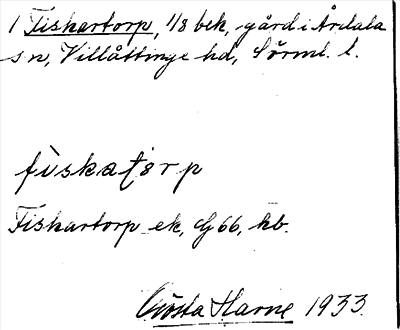 1 Fiskartorp, 1/8 bek, gård i Årdala
sn, Villåttinge hd, Sörml. l.
fiskatorp
Fiskartorp ek, G 66, kb.
Gösta Harne 1933.